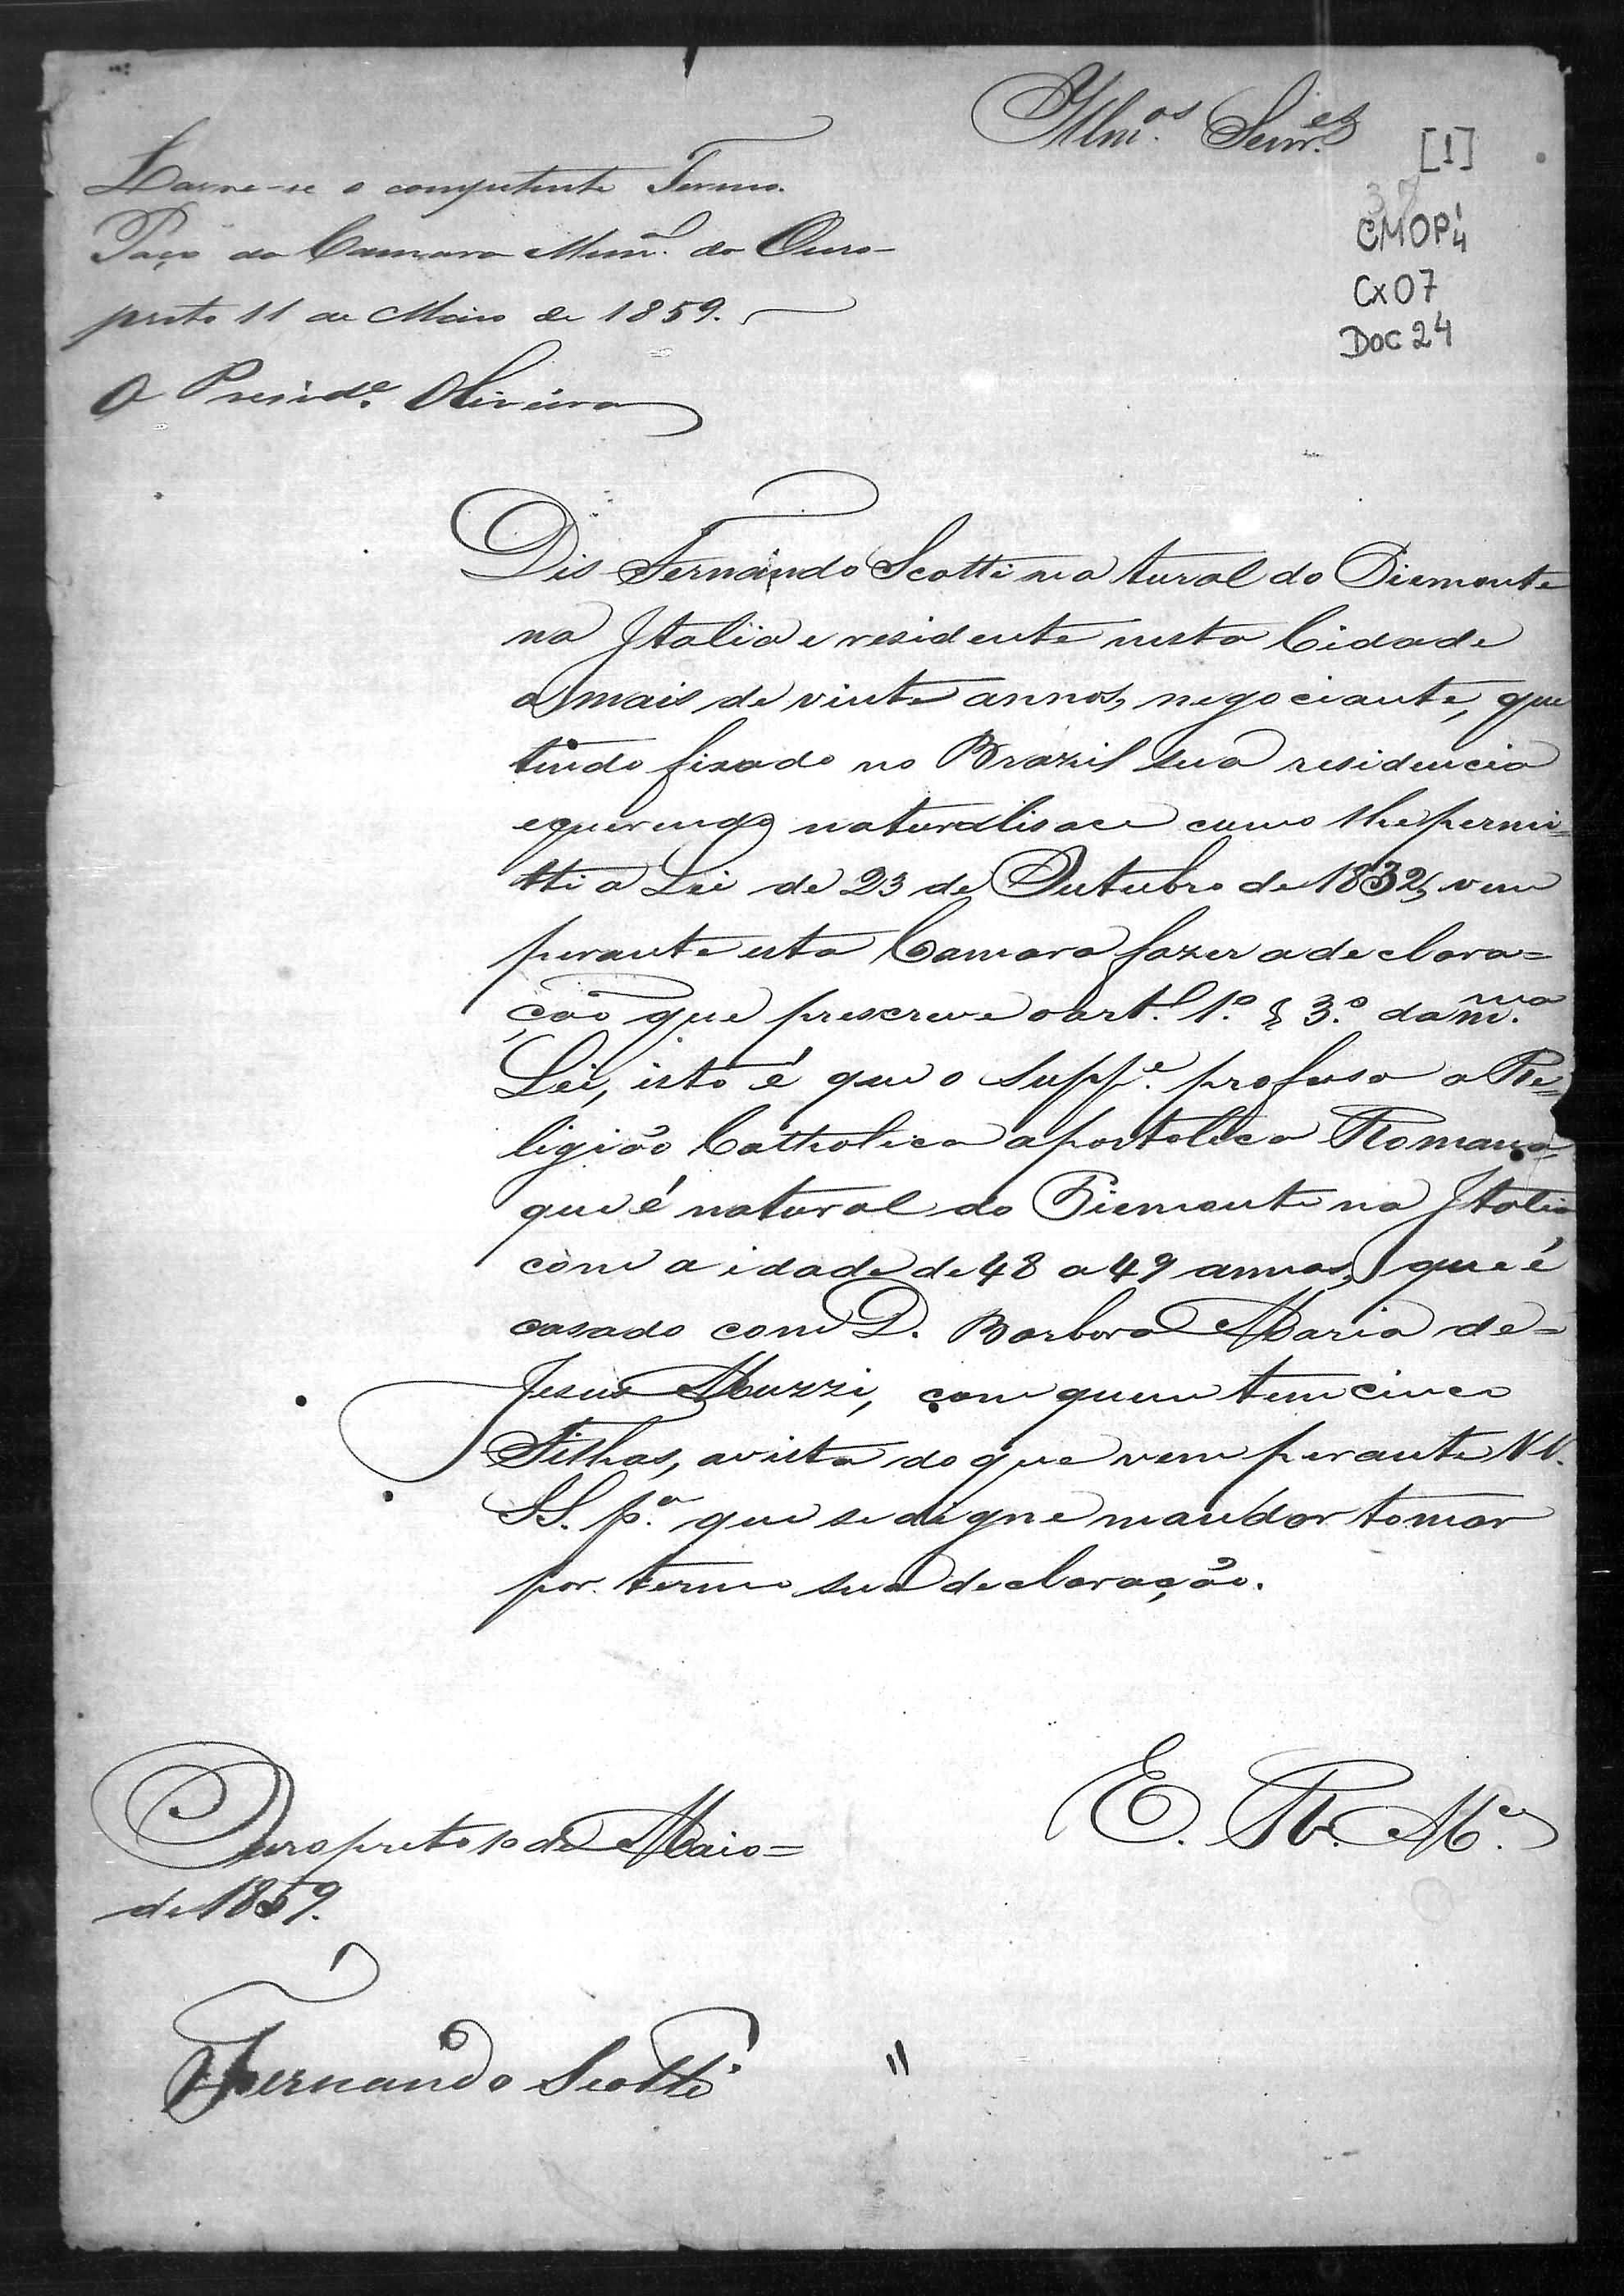 Illm.os Senr.es
[1]
CMOP 1/4
Cx 07
Doc 24
Lavre-se o competente Termo.
Paço da Camara Mun.al do Ouro-
preto 11 de Maio de 1859.
O Presid.e Oliveira
Dis Fernando Scotti natural do Piemonte
na Italia e residente nesta Cidade
a mais de vinte annos, negociante, que
tendo fixado no Brazil sua residencia
equerendo naturalisace como lhe permi=
tti a Lei de 23 de Outubro de 1832, vem
perante esta Camara fazer a declara=
ção que prescreve o art.º 1.º § 3.º da m.ma
Lei, isto é que o Supp.e professa a Re=
ligião Catholica apostolica Romana=
que é natural do Piemonte na Italia
com a idade de 48 a 49 annos, que é
casado com D. Barbara Maria de=
Jesus Muzzi, com quem tem cinco
Filhas, avista do que vem perante VV.
SS. p.a que se digne mandar tomar
por termo sua declaração.
E. R. M.ce
Ouropreto 10 de Maio=
de 1859.
Fernando Scotti